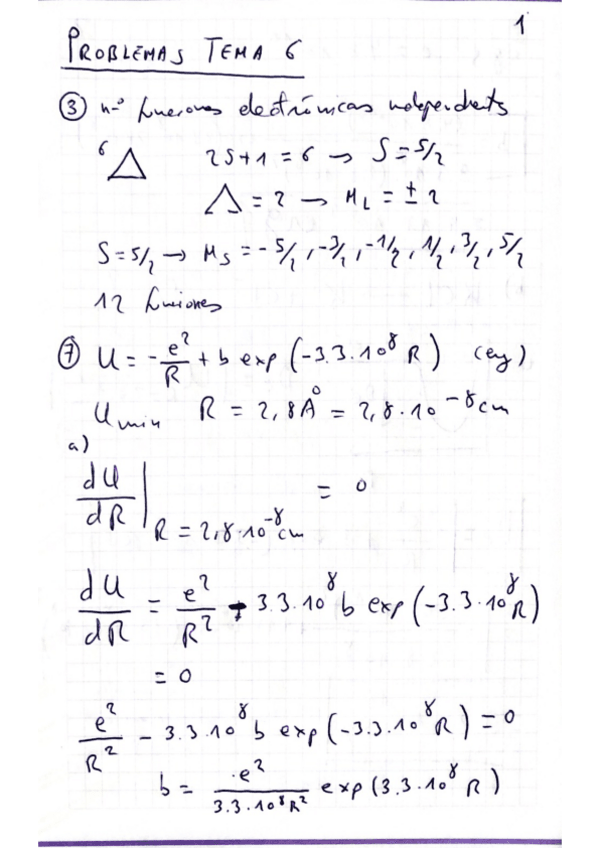 1
PROBLEMAS TEMA 6
③ nº funciones electrónicas independients
⁶Δ 2S+1 = 6 → S = 5/2
Λ = 2 → M_L = ± 2
S = 5/2 → M_S = -5/2, -3/2, -1/2, 1/2, 3/2, 5/2
12 funciones
⑦ U = -e²/R + b exp (-3.3·10⁸ R) (erg)
U min R = 2,8Å = 2,8·10⁻⁸ cm
a)
dU/dR | R = 2,8·10⁻⁸ cm = 0
dU/dR = e²/R² - 3.3·10⁸ b exp (-3.3·10⁸ R)
= 0
e²/R² - 3.3·10⁸ b exp (-3.3·10⁸ R) = 0
b = e²/3.3·10⁸R² exp (3.3·10⁸ R)